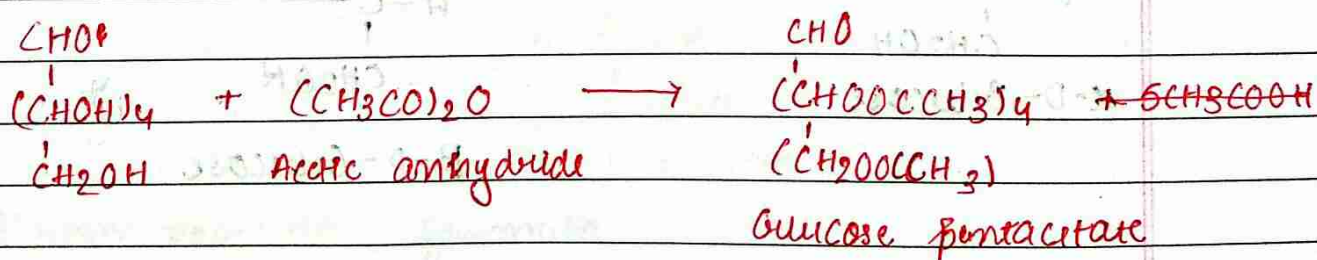 CHO CHO
(CHOH)4 + (CH3CO)2O → (CHOOCCH3)4 + 5CH3COOH
CH2OH Acetic anhydride (CH2OOCCH3)
Glucose pentacetate